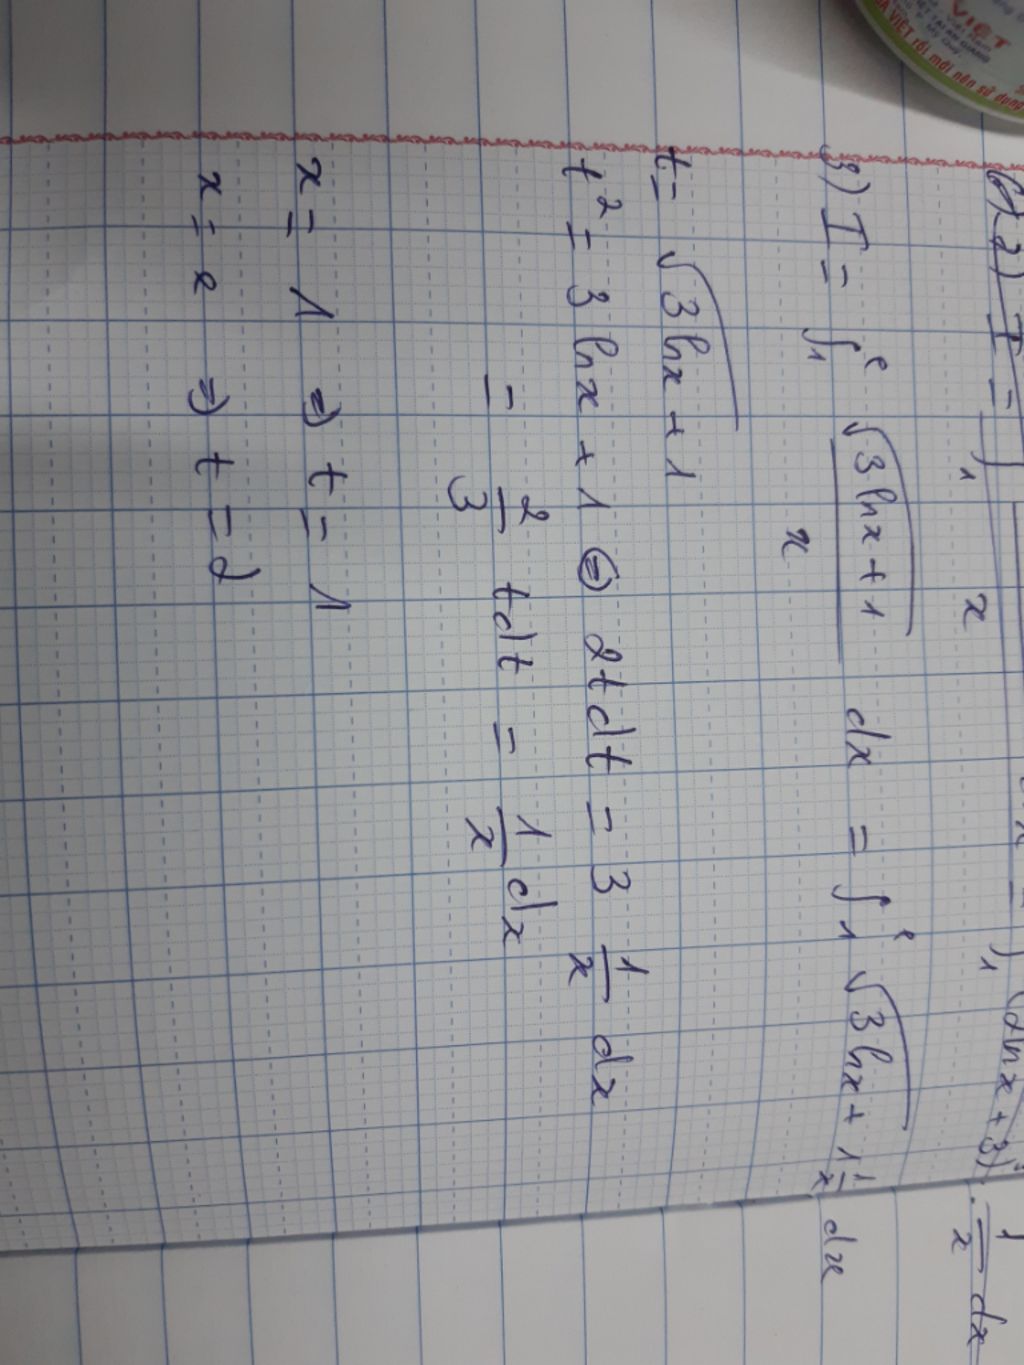 2) I = ∫₁ x = ∫₁ (2lnx + 3)³ . 1/x dx
3) I = ∫₁ᵉ √(3lnx + 1)/x dx = ∫₁ᵉ √(3lnx + 1) 1/x dx
t = √(3lnx + 1)
t² = 3lnx + 1 ⇔ 2tdt = 3 1/x dx
= 2/3 tdt = 1/x dx
x = 1 ⇒ t = 1
x = e ⇒ t = 2
VIỆT
VIỆT rồi mới nên sử dụng